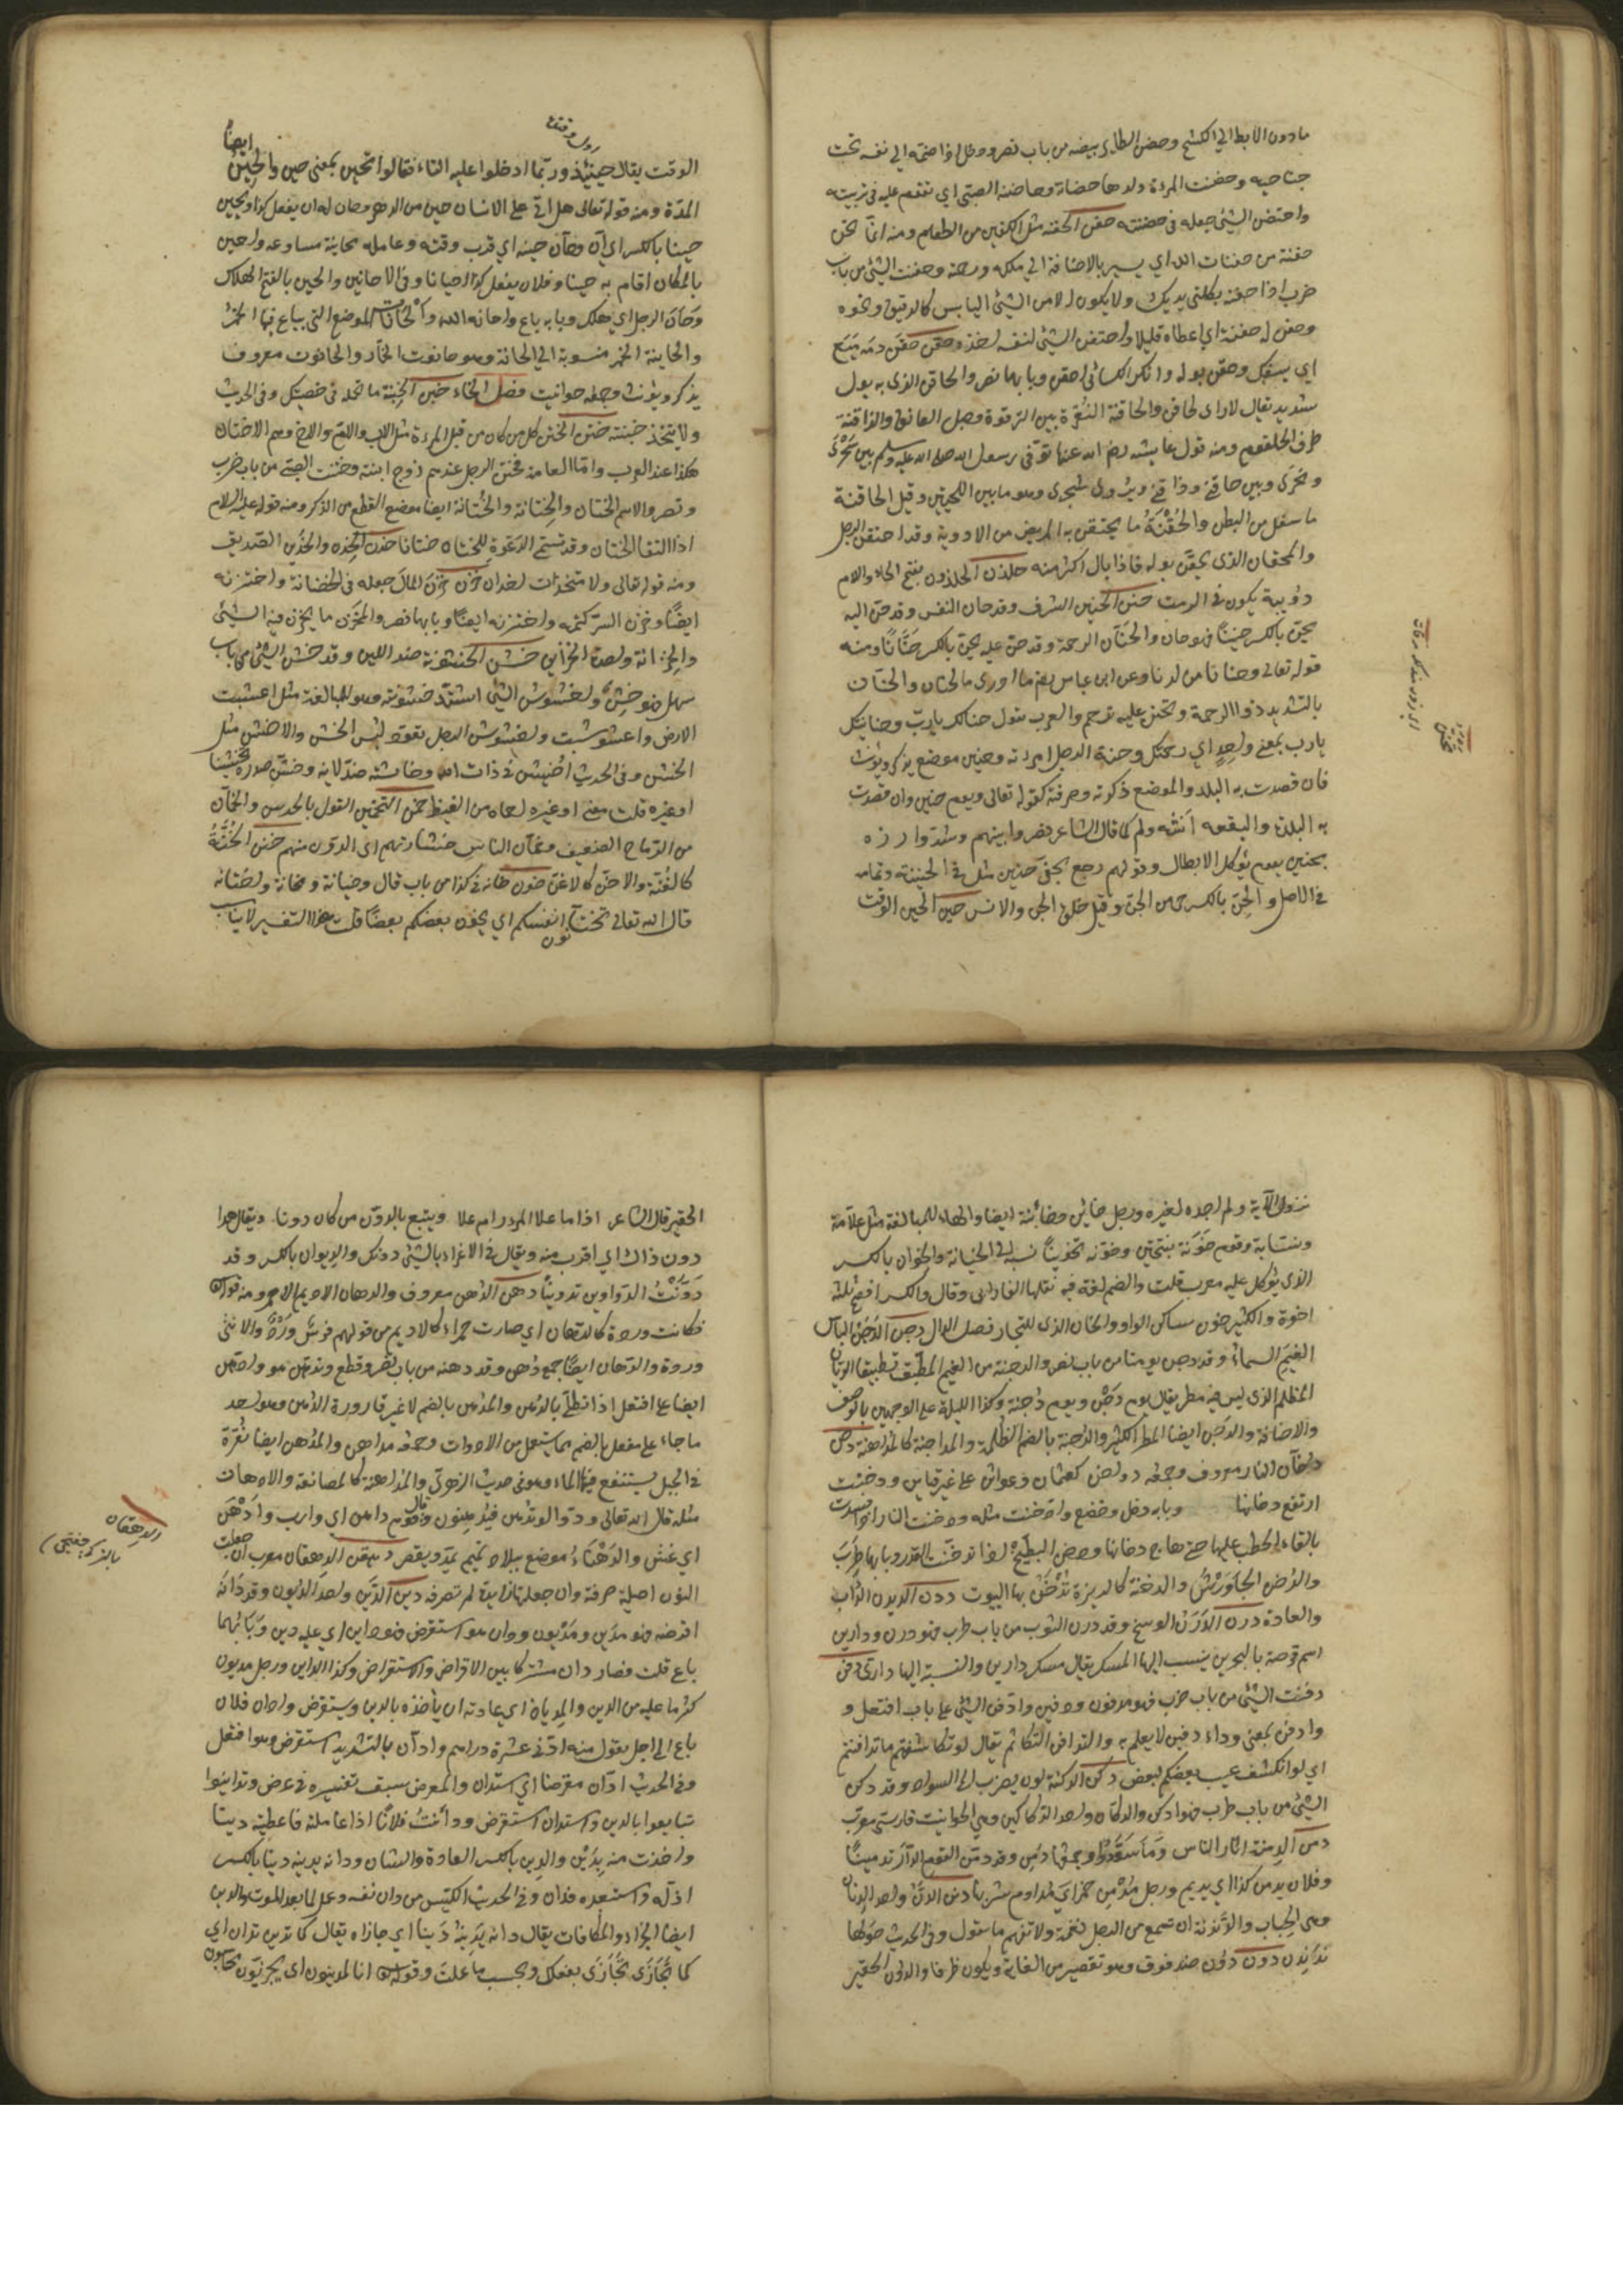 ما دون الابط الي الكشح وحضن الطاير بيضه من باب نصر ودخل اذا ضمه الي نفسه تحت
جناحيه وحضنت المرءة ولدها حضانة وحاضنة الصبي اي تقوم عليه في تربيته
واحتضن الشيئ جعله في حضنه حفن الحفنة مثل الكفين من الطعام ومنه انما نحن
حفنة من حفنات الله اي يسير بالاضافة الي ملكه ورحمته وحفنت الشيئ من باب
ضرب اذا جفته بكلتي يديك ولا يكون الا من الشيئ اليابس كالدقيق ونحوه
وحفن له حفنة اي اعطاه قليلا واحتفن الشيئ لنفسه اخذه حقن حقن دمه منع
اي يسفك وحقن بوله وانكر الكسائي احقن وبابهما نصر والحاقن الذي به بول
شديد يقال لا راى لحاقن والحاقنة النقرة بين الترقوة وحبل العاتق والذاقنة
طرف الحلقوم ومنه قول عايشه رضي الله عنها توفي رسول الله صلى الله عليه وسلم بين سحري
ونحري وبين حاقنتي وذاقنتي ويروى شجري وهو ما بين اللحيين وقيل الحاقنة
ما سفل من البطن والحُقْنَةُ ما يحتقن به المريض من الادوية وقد احتقن الرجل
والمحقان الذي يحقن بوله فاذا بال اكثر منه حلذن الحلذون بفتح الحاء واللام
دويبة يكون في الرمث حنن الحنين الشوق وتوقان النفس وقد حن اليه
يحن بالكسر حنينا فهو حان والحنان الرحمة وقد حن عليه يحن بالكسر حنانا ومنه
قوله تعالى وحنانا من لدنا وعن ابن عباس رضي ما ادري ما الحنان والحنان
بالتشديد ذو الرحمة وتحنن عليه ترحم والعرب تقول حنانك يا رب وحنانيك
يا رب بمعني واحد اي رحمتك وحنة الرجل امراته وحنين موضع يذكر ويؤنث
فان قصدت به البلد والموضع ذكرته وصرفته كقوله تعالى ويوم حنين وان قصدت
به البلدة والبقعة انثته ولم كما قال الشاعر نصروا نبيهم وشدوا ازره
بحنين يوم تواكل الابطال وقولهم رجع بخفي حنين مثل في الخيبة وتمامه
في الاصل والحِنّ بالكسر حي من الجن وقيل خلق بين الجن والانس حين الحين الوقت
الوقت يقال حينئذ وربما ادخلوا عليه التاء فقالوا تحين بمعنى حين والحين ايضا
المدة ومنه قوله تعالى هل اتى على الانسان حين من الدهر وحان له ان يفعل كذا يحين
حينا بالكسر اي آن وحان حينه اي قرب وقته وعامله محاينة مساوعة واحين
بالمكان اقام به حينا وفلان يفعل كذا احيانا وفي الاحايين والحين بالفتح الهلاك
وحان الرجل اي هلك وبابه باع واحانه الله والحانات المواضع التي يباع فيها الخمر
والحانية الخمر منسوبة الي الحانة وهو حانوت الخمار والحانوت معروف
يذكر ويؤنث وجمعه حوانيت فصل الخاء خبن الخبنة ما تحمله في حضنك وفي الحديث
ولا يتخذ خبنة ختن الختن كل من كان من قبل المرءة مثل الاب والاخ وهم الاختان
هكذا عند العرب واما العامة فختن الرجل عندهم زوج ابنته وختنت الصبي من باب ضرب
ونصر والاسم الختان والختانة والختانة ايضا موضع القطع من الذكر ومنه قوله عليه السلام
اذا التقا الختانان وقد تسمى الدعوة للختان ختانا خدن الخدن والخدين الصديق
ومنه قوله تعالى ولا متخذات اخدان خزن خزن المال جعله في الخزانة واختزنه
ايضا وخزن السر كتمه واختزنه ايضا وبابهما نصر والمخزن ما يخزن فيه الشيئ
والخزانة واحدة الخزاين خشن الخشونة ضد اللين وقد خشن الشيئ من باب
سهل فهو خَشِنٌ واخشوشن الشيئ اشتدت خشونته وهو للمبالغة مثل اعشبت
الارض واعشوشبت واخشوشن الرجل تعود لبس الخشن والاخشن مثل
الخشن وفي الحديث اخيشن في ذات الله وخاشنه ضد لاينه وخشن صدره تخشينا
اوغره قلت معنى اوغره احماه من الغيظ خمن التخمين القول بالحدس والخمان
من الرماح الضعيف وخمان الناس خشارتهم اي الدون منهم خنن الخُنَّةُ
كالغنة والاخن كالاغن خون خانه في كذا من باب قال وخيانة ومخانة واختانه
قال الله تعالى تختانون انفسكم اي يخون بعضكم بعضا قلت هذا التفسير لا يناسب
نزول الاية ولم اجده لغيره ورجل خائن وخائنة ايضا والهاء للمبالغة مثل علامة
ونسابة وقوم خونة بفتحتين وخونه تخوينا نسبه الى الخيانة والخوان بالكسر
الذي يؤكل عليه معرب قلت والضم لغة فيه نقلها الفارابي وقال والكسر افصح ثلثة
اخونة والكثير خون ساكن الواو والخان الذي للتجار فصل الدال دجن الدجن الباس
الغيم السماء وقد دجن يومنا من باب نصر والدجنة من الغيم المطبق تطبيقا الريان
المظلم الذي ليس فيه مطر يقال يوم دَجْنٍ ويوم دجنة وكذا الليلة على الوجهين بالوصف
والاضافة والدجن ايضا المطر الكثير والدجنة بالضم الظلمة والمداجنة كالمداهنة دخن
دخان النار معروف وجمعه دواخن كعثان وعواثن على غير قياس ودخنت
ارتفع دخانها وبابه دخل وخضع وادخنت مثله ودخنت النار اذا فسدت
بالقاء الحطب عليها حتى هاج دخانها ودخن الطبيخ اذا تدخنت القدر وبابهما طرب
والدخن الجاورس والدخنة كالذريرة تُدْخَنُ بها البيوت ددن الديدن الداب
والعادة درن الدرن الوسخ وقد درن الثوب من باب طرب فهو درن ودارين
اسم فرضة بالبحرين ينسب اليها المسك يقال مسك دارين والنسبة اليها داري دفن
دفنت الشيئ من باب ضرب فهو مدفون ودفين وادفن الشيئ على باب افتعل و
واندفن بمعنى وداء دفين لا يعلم به والتدافن التكاتم يقال لو تكاشفتم ما تدافنتم
اي لو انكشف عيب بعضكم لبعض دكن الدكنة لون يضرب الى السواد وقد دكن
الشيئ من باب طرب فهو ادكن والدكان واحد الدكاكين وهي الحوانيت فارسي معرب
دمن الدمنة اثار الناس وما سودوا وجمعها دمن وقد دمن القوم الدار تدمينا
وفلان يدمن كذا اي يديم ورجل مدمن خمر اي مداوم شربها دنن الدن واحد الدنان
وهي الحباب والدندنة ان تسمع من الرجل نغمة ولا تفهم ما يقول وفي الحديث حولها
ندندن دون دون ضد فوق وهو تقصير من الغاية ويكون ظرفا والدون الحقير
الحقير قال الشاعر اذا ما علا المرء رام علا ويقنع بالدون من كان دونا ويقال هذا
دون ذاك اي اقرب منه ويقال في الاغراء بالشيئ دونك والديوان بالكسر وقد
دَوَّنْتُ الدواوين تدوينا دهن الدهن معروف والدهان الاديم الاحمر ومنه قوله تعالى
فكانت وردة كالدهان اي صارت حمراء كالاديم من قولهم فرس وَرْدٌ والانثى
وردة والدهان ايضا جمع دهن وقد دهنه من باب نصر وقطع وتدهن هو وادهن
ايضا على افتعل اذا تطلى بالدهن والمدهن بالضم لا غير قارورة الدهن وهو احد
ما جاء على مفعل بالضم مما يستعمل من الادوات وجمعه مداهن والمدهن ايضا نقرة
في الجبل يستنقع فيها الماء وهو في حديث الزهري والمداهنة كالمصانعة والادهان
مثله قال الله تعالى ودوا لو تدهن فيدهنون وقال قوم داهن اي وارب وادهن
اي غش والدهناء موضع ببلاد تميم يمد ويقصر دهقن الدهقان معرب ان جعلت
النون اصلية صرفته وان جعلتها زايدة لم تصرفه دين الدين واحد الديون وقد دانه
اقرضه فهو مدين ومديون ودان هو استقرض فهو داين اي عليه دين وبابهما
باع قلت فصار دان مشتركا بين الاقراض والاستقراض وكذا الداين ورجل مديون
كثر ما عليه من الدين والمديان اي عادته ان ياخذ بالدين ويستقرض وادان فلان
باع الى اجل يقول منه ادني عشرة دراهم وادان بالتشديد استقرض وهو افتعل
وفي الحديث ادان معرضا اي استدان والمعرض سبق تفسيره في عرض وتداينوا
تبايعوا بالدين واستدان استقرض وداينت فلانا اذا عاملته فاعطيته دينا
واخذت منه بدين والدين بالكسر العادة والشان ودانه يدينه دينا بالكسر
اذله واستعبده فدان وفي الحديث الكيس من دان نفسه وعمل لما بعد الموت والدين
ايضا الجزاء والمكافات يقال دانه يدينه دينا اي جازاه يقال كما تدين تدان اي
كما تُجَازَي تُجَازَي بفعلك وبحسب ما عملت وقوله تعالى ائنا لمدينون اي مجزيون محاسبون
الدهقان